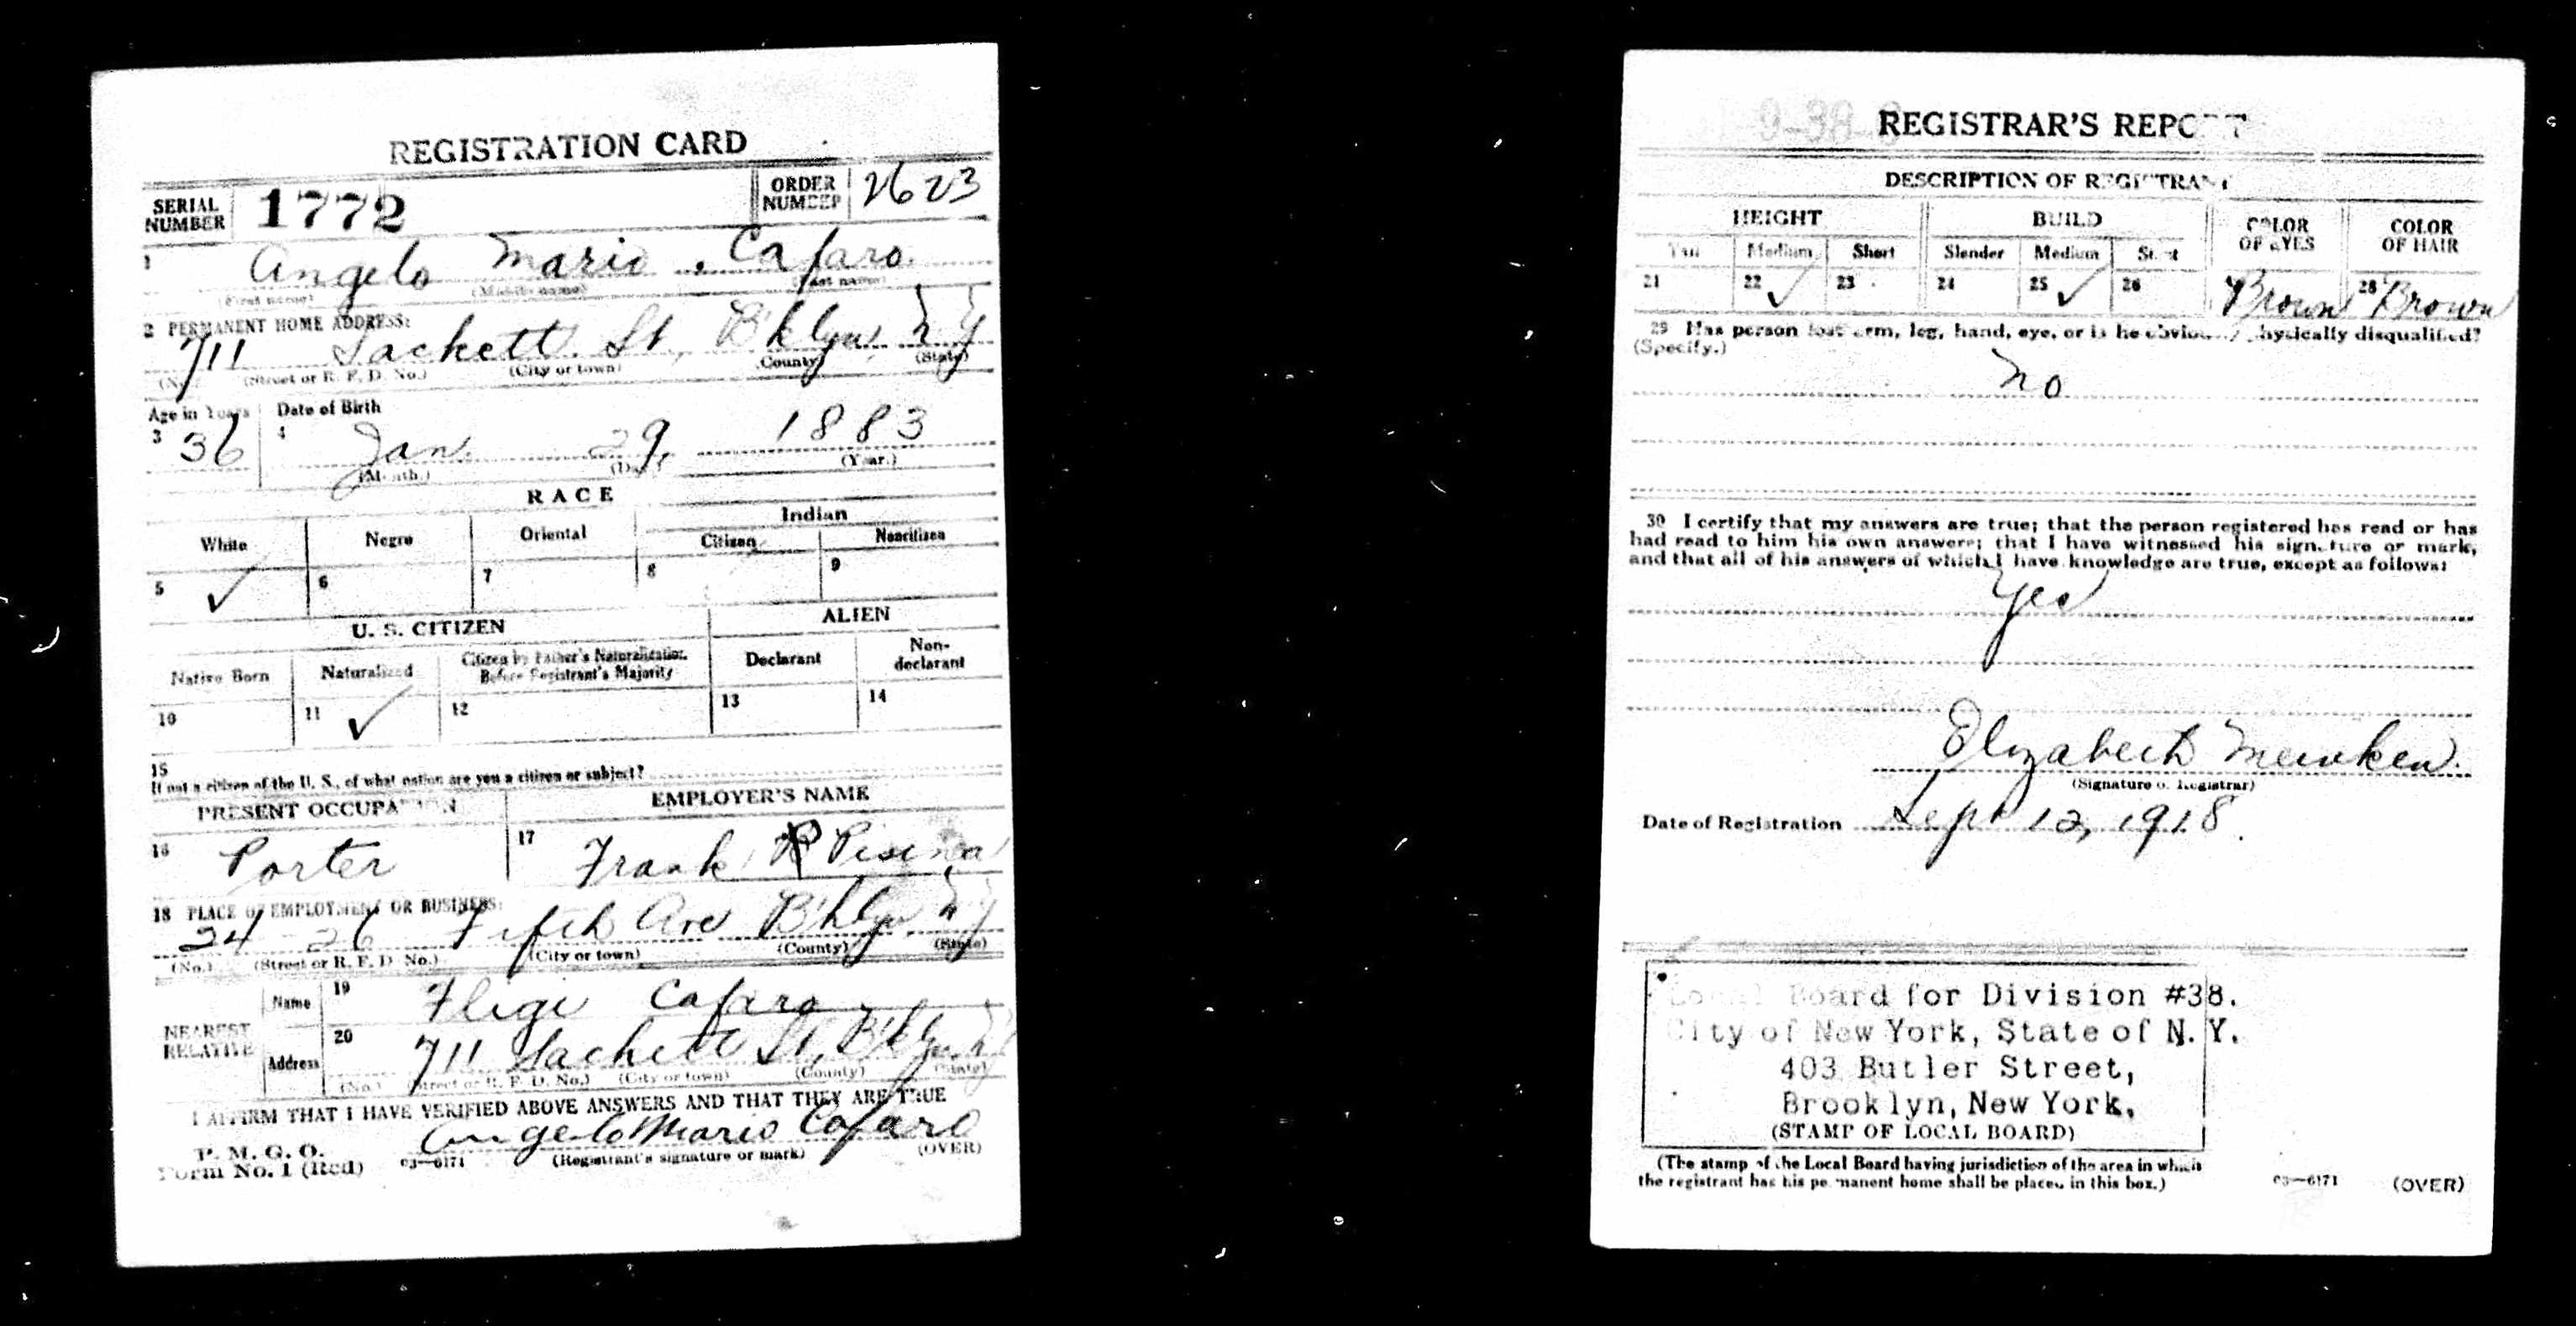 REGISTRATION CARD
SERIAL NUMBER 1772 ORDER NUMBER 2623
1 Angelo Mario Cafaro
(First name) (Middle name) (Last name)
2 PERMANENT HOME ADDRESS:
711 Sackett St, B'klyn N Y
(No.) (Street or R. F. D. No.) (City or town) (County) (State)
Age in Years Date of Birth
3 36 4 Jan. 29, 1883
(Month.) (Day.) (Year.)
RACE
White Negro Oriental Indian
Citizen Noncitizen
5 ✓ 6 7 8 9
U. S. CITIZEN ALIEN
Native Born Naturalized Citizen by Father's Naturalization Before Registrant's Majority Declarant Non-declarant
10 11 ✓ 12 13 14
15
If not a citizen of the U. S., of what nation are you a citizen or subject?
PRESENT OCCUPATION EMPLOYER'S NAME
16 Porter 17 Frank
18 PLACE OF EMPLOYMENT OR BUSINESS:
24 - 26 Fifth Ave B'klyn N Y
(No.) (Street or R. F. D. No.) (City or town) (County) (State)
NEAREST RELATIVE
Name 19 Cafaro
Address 20 711 Sackett St, B'klyn
(No.) (Street or R. F. D. No.) (City or town) (County) (State)
I AFFIRM THAT I HAVE VERIFIED ABOVE ANSWERS AND THAT THEY ARE TRUE
P. M. G. O.
Form No. 1 (Red) 03—6171 Angelo Mario Cafaro
(Registrant's signature or mark) (OVER)
REGISTRAR'S REPORT
DESCRIPTION OF REGISTRANT
HEIGHT BUILD COLOR OF EYES COLOR OF HAIR
Tall Medium Short Slender Medium Stout
21 22 ✓ 23 24 25 ✓ 26 Brown 28 Brown
29 Has person lost arm, leg, hand, eye, or is he obviously physically disqualified?
(Specify.)
No
30 I certify that my answers are true; that the person registered has read or has
had read to him his own answers; that I have witnessed his signature or mark,
and that all of his answers of which I have knowledge are true, except as follows:
Yes
Elizabeth
(Signature of Registrar)
Date of Registration Sept 12, 1918.
Local Board for Division #38.
City of New York, State of N.Y.
403 Butler Street,
Brooklyn, New York,
(STAMP OF LOCAL BOARD)
(The stamp of the Local Board having jurisdiction of the area in which
the registrant has his permanent home shall be placed in this box.)
03—6171 (OVER)